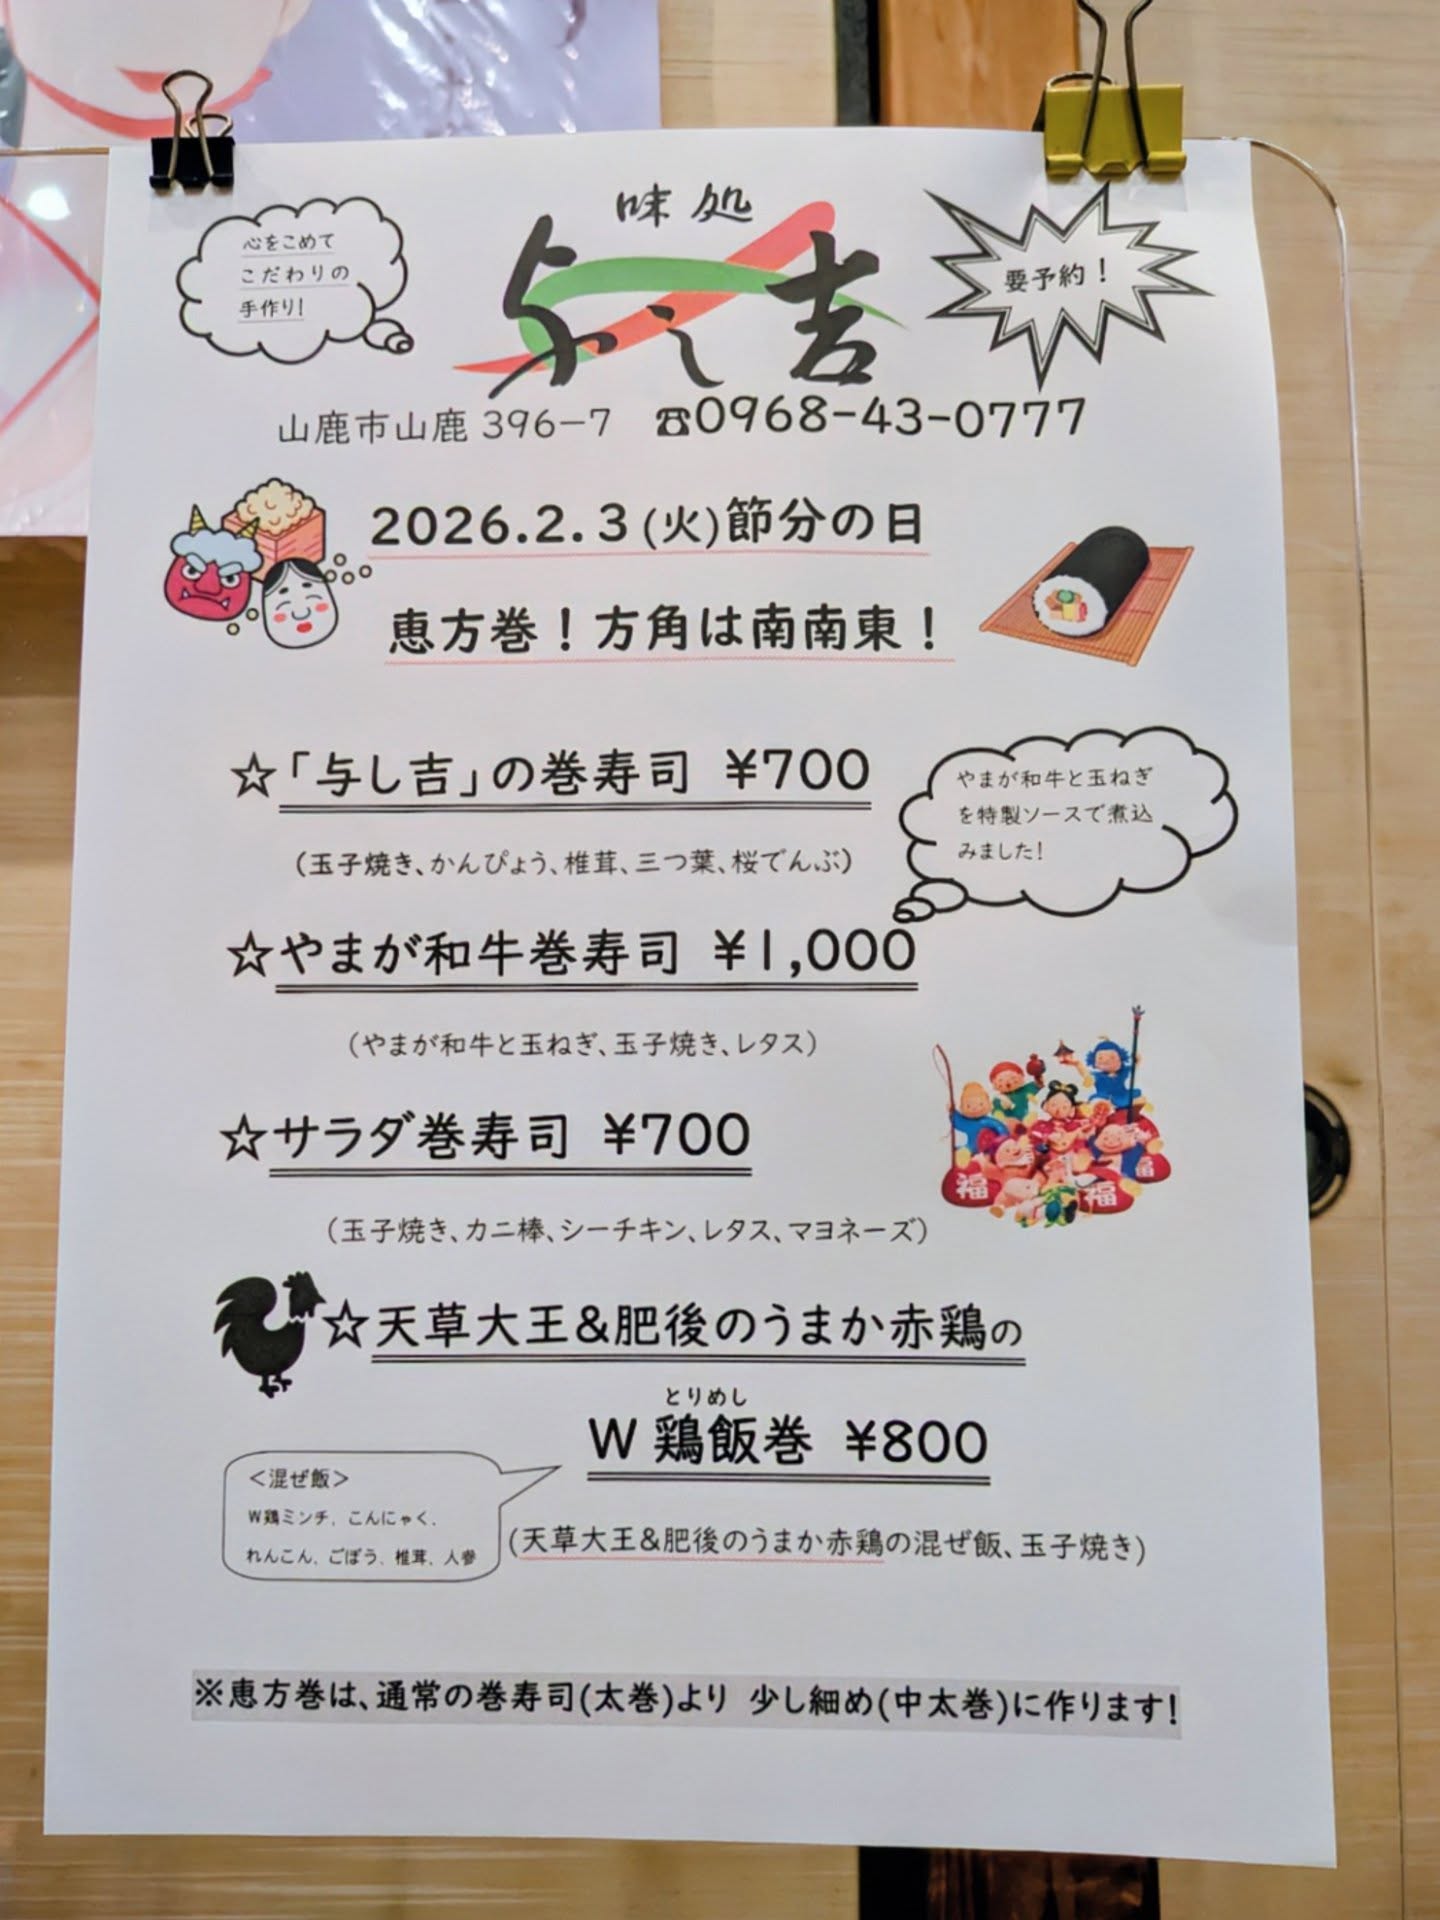 心をこめて
こだわりの
手作り!
味処
与し吉
要予約！
山鹿市山鹿 396−7 ☎0968-43-0777
2026.2.3(火)節分の日
恵方巻！方角は南南東！
☆「与し吉」の巻寿司 ¥700
(玉子焼き、かんぴょう、椎茸、三つ葉、桜でんぶ)
やまが和牛と玉ねぎ
を特製ソースで煮込
みました!
☆やまが和牛巻寿司 ¥1,000
(やまが和牛と玉ねぎ、玉子焼き、レタス)
☆サラダ巻寿司 ¥700
(玉子焼き、カニ棒、シーチキン、レタス、マヨネーズ)
福 福 福
☆天草大王&肥後のうまか赤鶏の
とりめし
W 鶏飯巻 ¥800
＜混ぜ飯＞
W鶏ミンチ、こんにゃく、
れんこん、ごぼう、椎茸、人参
(天草大王&肥後のうまか赤鶏の混ぜ飯、玉子焼き)
※恵方巻は、通常の巻寿司(太巻)より 少し細め(中太巻)に作ります!